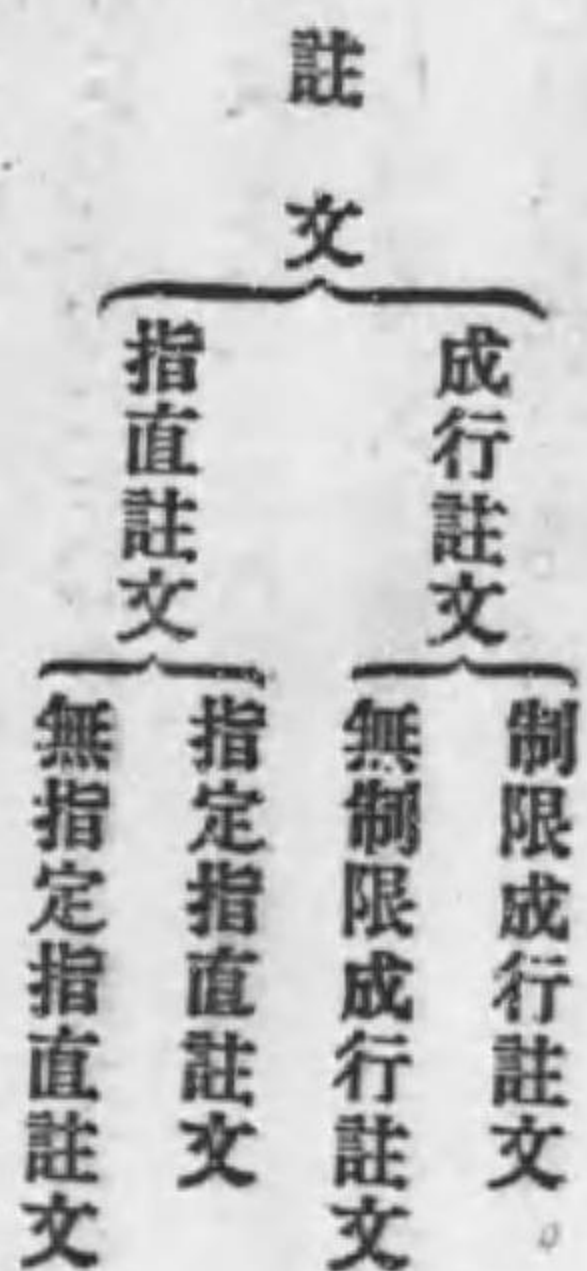 註文
成行註文
制限成行註文
無制限成行註文
指直註文
指定指直註文
無指定指直註文